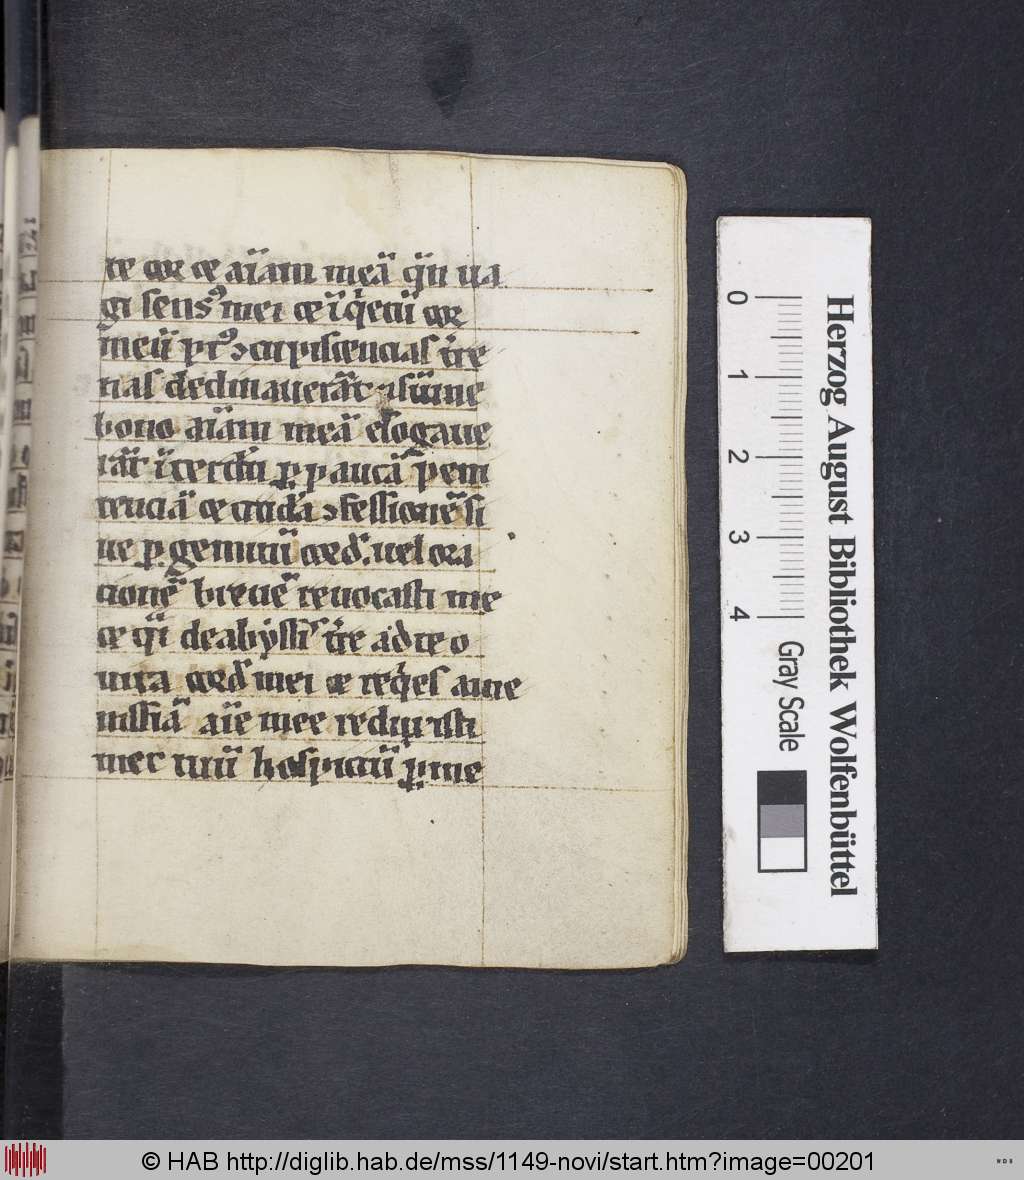 te cor et aīam meā qn̄ ua
gi sensꝰ mei et īq̇etū cor
meū pt᷒ ꝯcupiscencias t̄re
nas declinauerāt ⁊ sūme
bono aīam meā eloგaue
rāt īterdū ꝑ paucā peni
tenciā et cruda ꝯfessionē si
ue ꝑ gemitū cord᷒ uel ora
cionē breuē reuocasti me
et q̄i de abyssū t̄re ad te o
uita cord᷒ mei et req̇es ame
nissīa aīe mee redipisti
mec tuū hospiciū ꝑ me
Herzog August Bibliothek Wolfenbüttel
0 1 2 3 4
Gray Scale
© HAB http://diglib.hab.de/mss/1149-novi/start.htm?image=00201